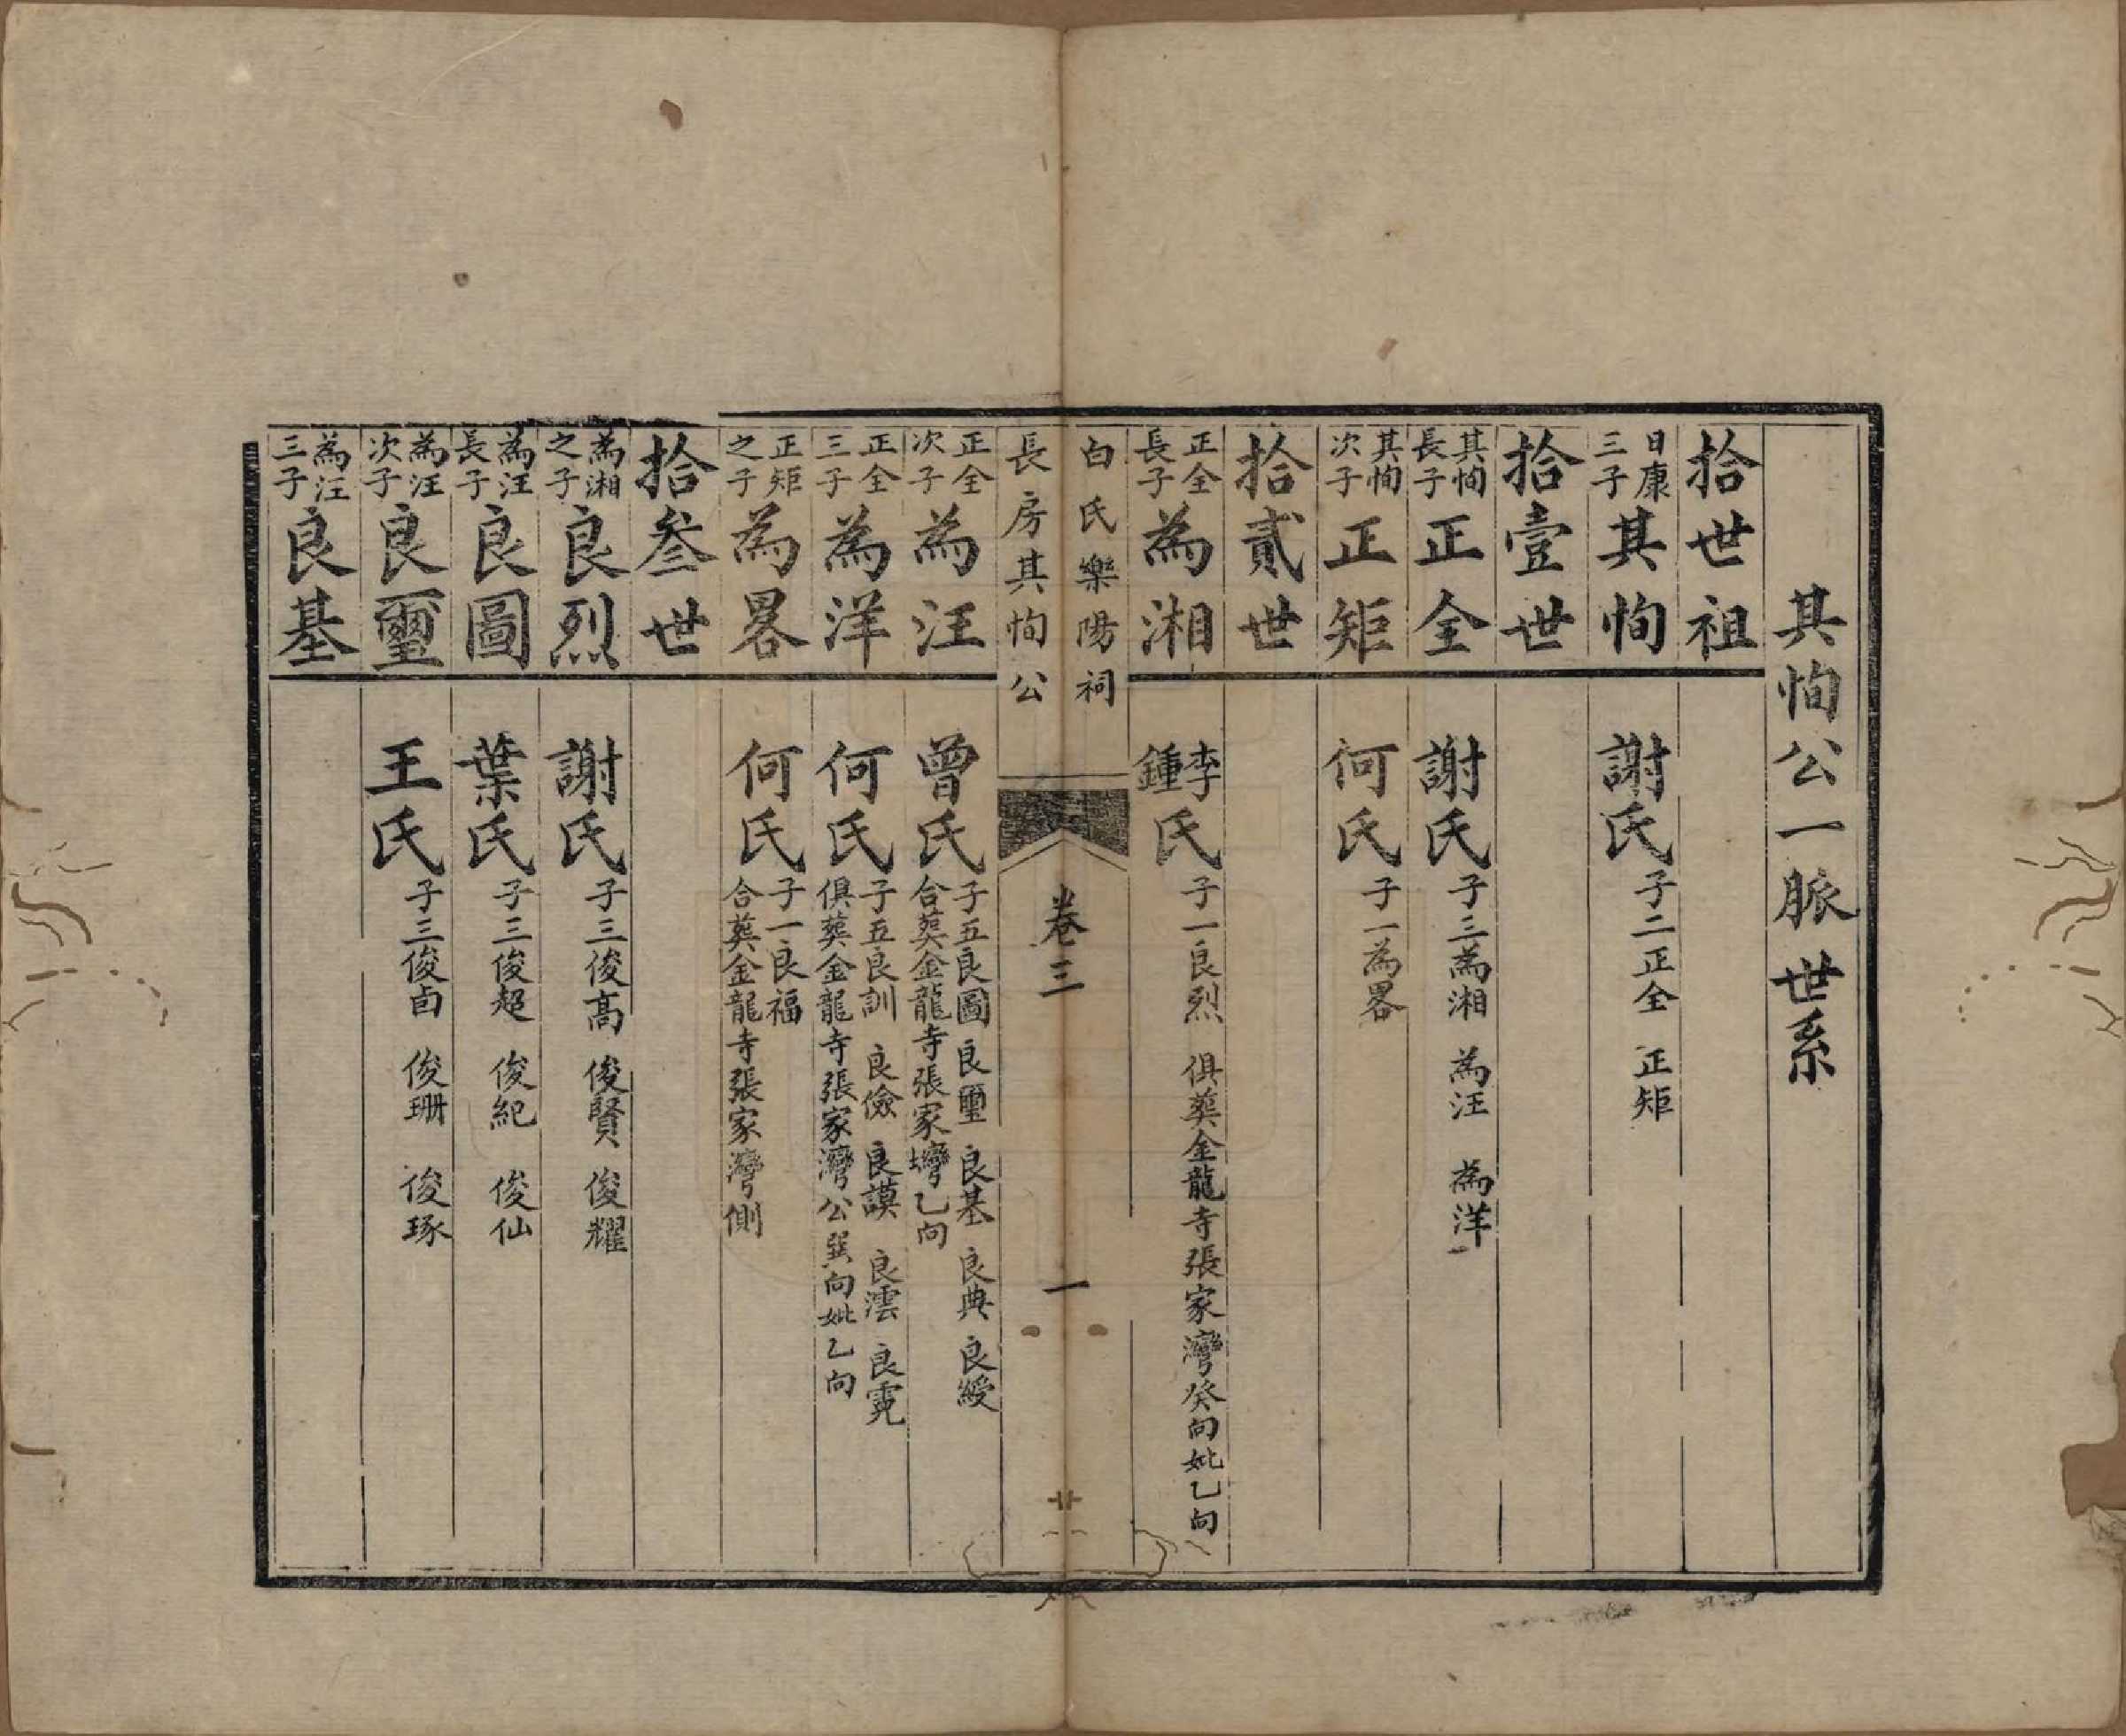 其恂公一脈世系
拾世祖
日康三子
其恂
謝氏
子二正全 正矩
拾壹世
其恂長子
正全
謝氏
子三為湘 為汪 為洋
其恂次子
正矩
何氏
子一為畧
拾貳世
正全長子
為湘
李鍾氏
子一良烈 俱葬金龍寺張家灣癸向妣乙向
白氏樂陽祠
長房其恂公
卷三
一
正全次子
為汪
曾氏
子五良圖 良璽 良基 良典 良綬
合葬金龍寺張家塆乙向
正全三子
為洋
何氏
子五良訓 良儉 良謨 良澐 良霓
俱葬金龍寺張家灣公巽向妣乙向
正矩之子
為畧
何氏
子一良福
合葬金龍寺張家灣側
拾叁世
為湘之子
良烈
謝氏
子三俊高 俊賢 俊耀
為汪長子
良圖
葉氏
子三俊超 俊紀 俊仙
為汪次子
良璽
王氏
子三俊卣 俊珊 俊琢
為汪三子
良基